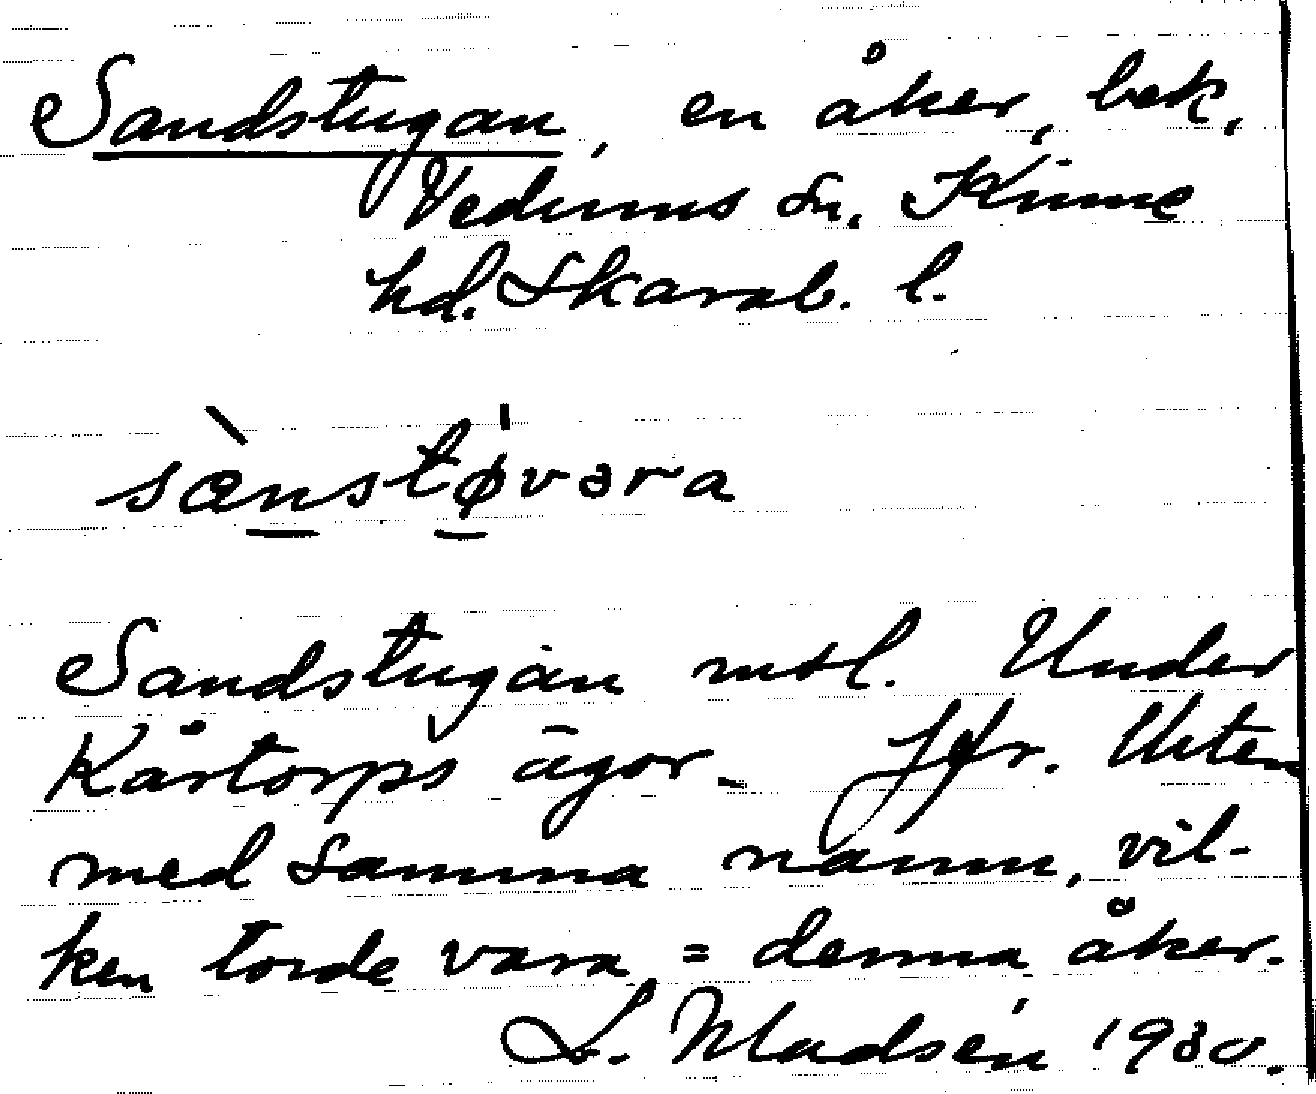 Sandstugan, en åker, bek.
Vedums sn, Kinne
hd. Skarab. l.
sænstøvəra
Sandstugan mtl. Under
Kårtorps ägor. Jfr. Urten
med samma namn, vil-
ken torde vara = denna åker.
L. Madsén 1930.